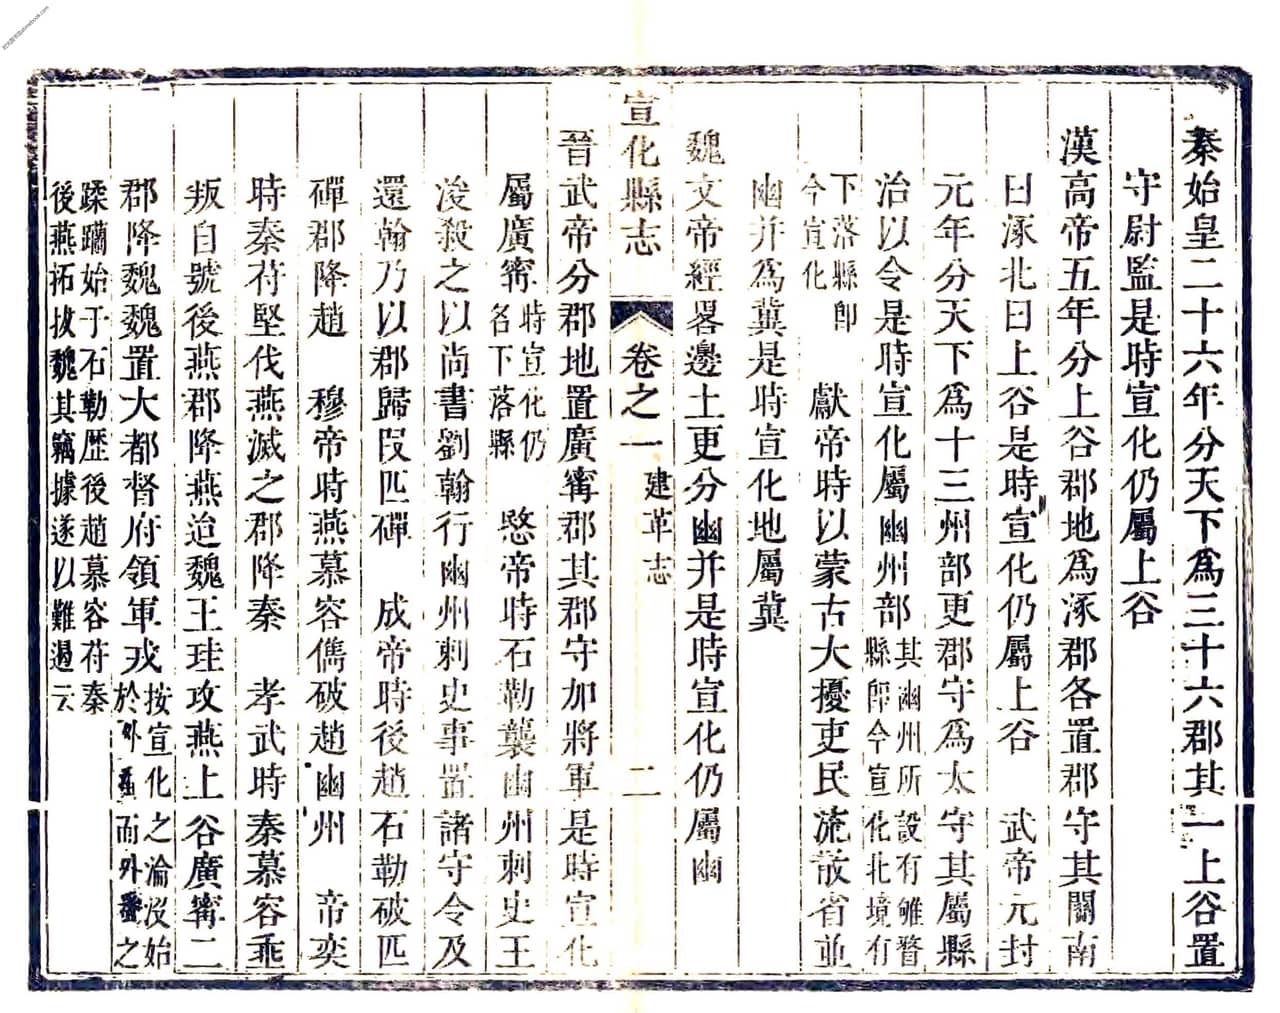 秦始皇二十六年分天下爲三十六郡其一上谷置
守尉監是時宣化仍屬上谷
漢高帝五年分上谷郡地爲涿郡各置郡守其關南
曰涿北曰上谷是時宣化仍屬上谷　武帝元封
元年分天下爲十三州部更郡守爲太守其屬縣
治以令是時宣化屬幽州部
其幽州所設有雊瞀
縣卽今宣化北境有
下落縣卽
今宣化
獻帝時以蒙古大擾吏民流散省並
幽并爲冀是時宣化地屬冀
魏文帝經畧邊土更分幽并是時宣化仍屬幽
宣化縣志
卷之一
建革志
二
晉武帝分郡地置廣甯郡其郡守加將軍是時宣化
屬廣甯
時宣化仍
名下落縣
愍帝時石勒襲幽州刺史王
浚殺之以尚書劉翰行幽州刺史事置諸守令及
還翰乃以郡歸段匹磾　成帝時後趙石勒破匹
磾郡降趙　穆帝時燕慕容儁破趙幽州　帝奕
時秦苻堅伐燕滅之郡降秦　孝武時秦慕容垂
叛自號後燕郡降燕迨魏王珪攻燕上谷廣甯二
郡降魏魏置大都督府領軍戎
按宣化之淪沒始
於外藩而外藩之
蹂躪始于石勒歷後趙慕容苻秦
後燕拓拔魏其竊據遂以難遏云